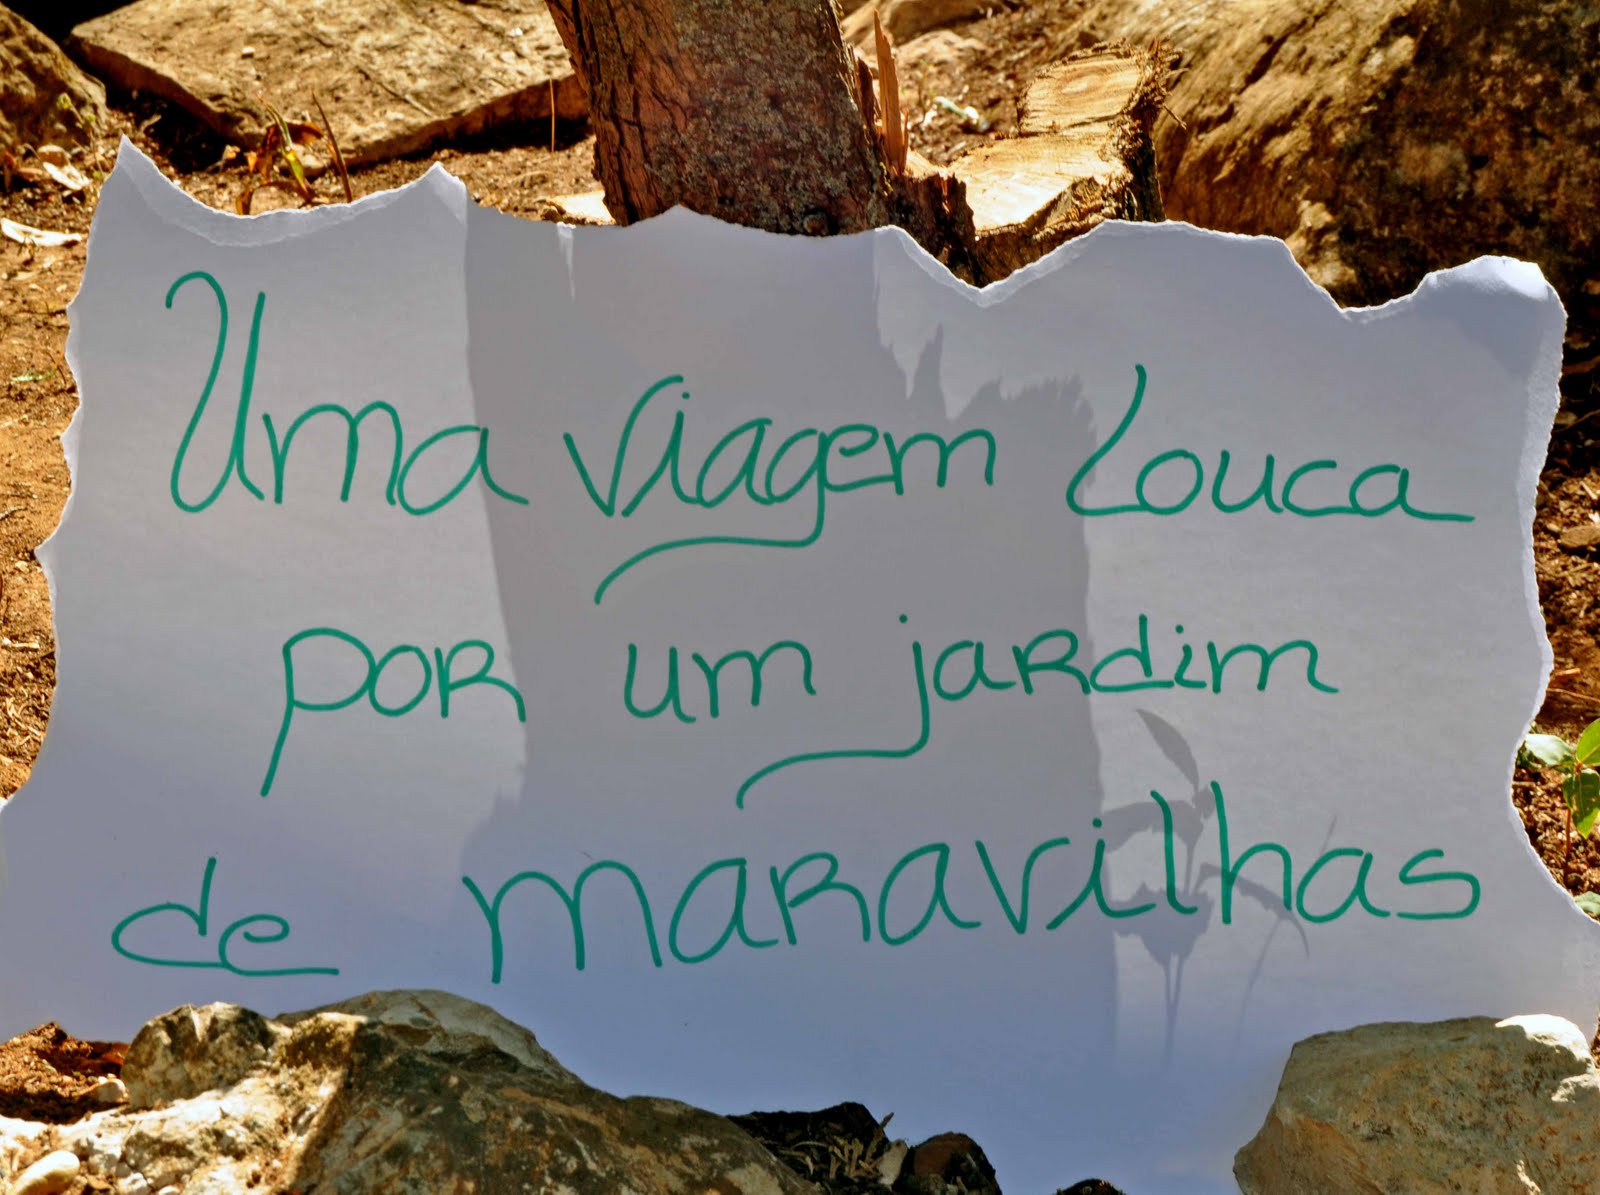 Uma viagem louca
por um jardim
de maravilhas